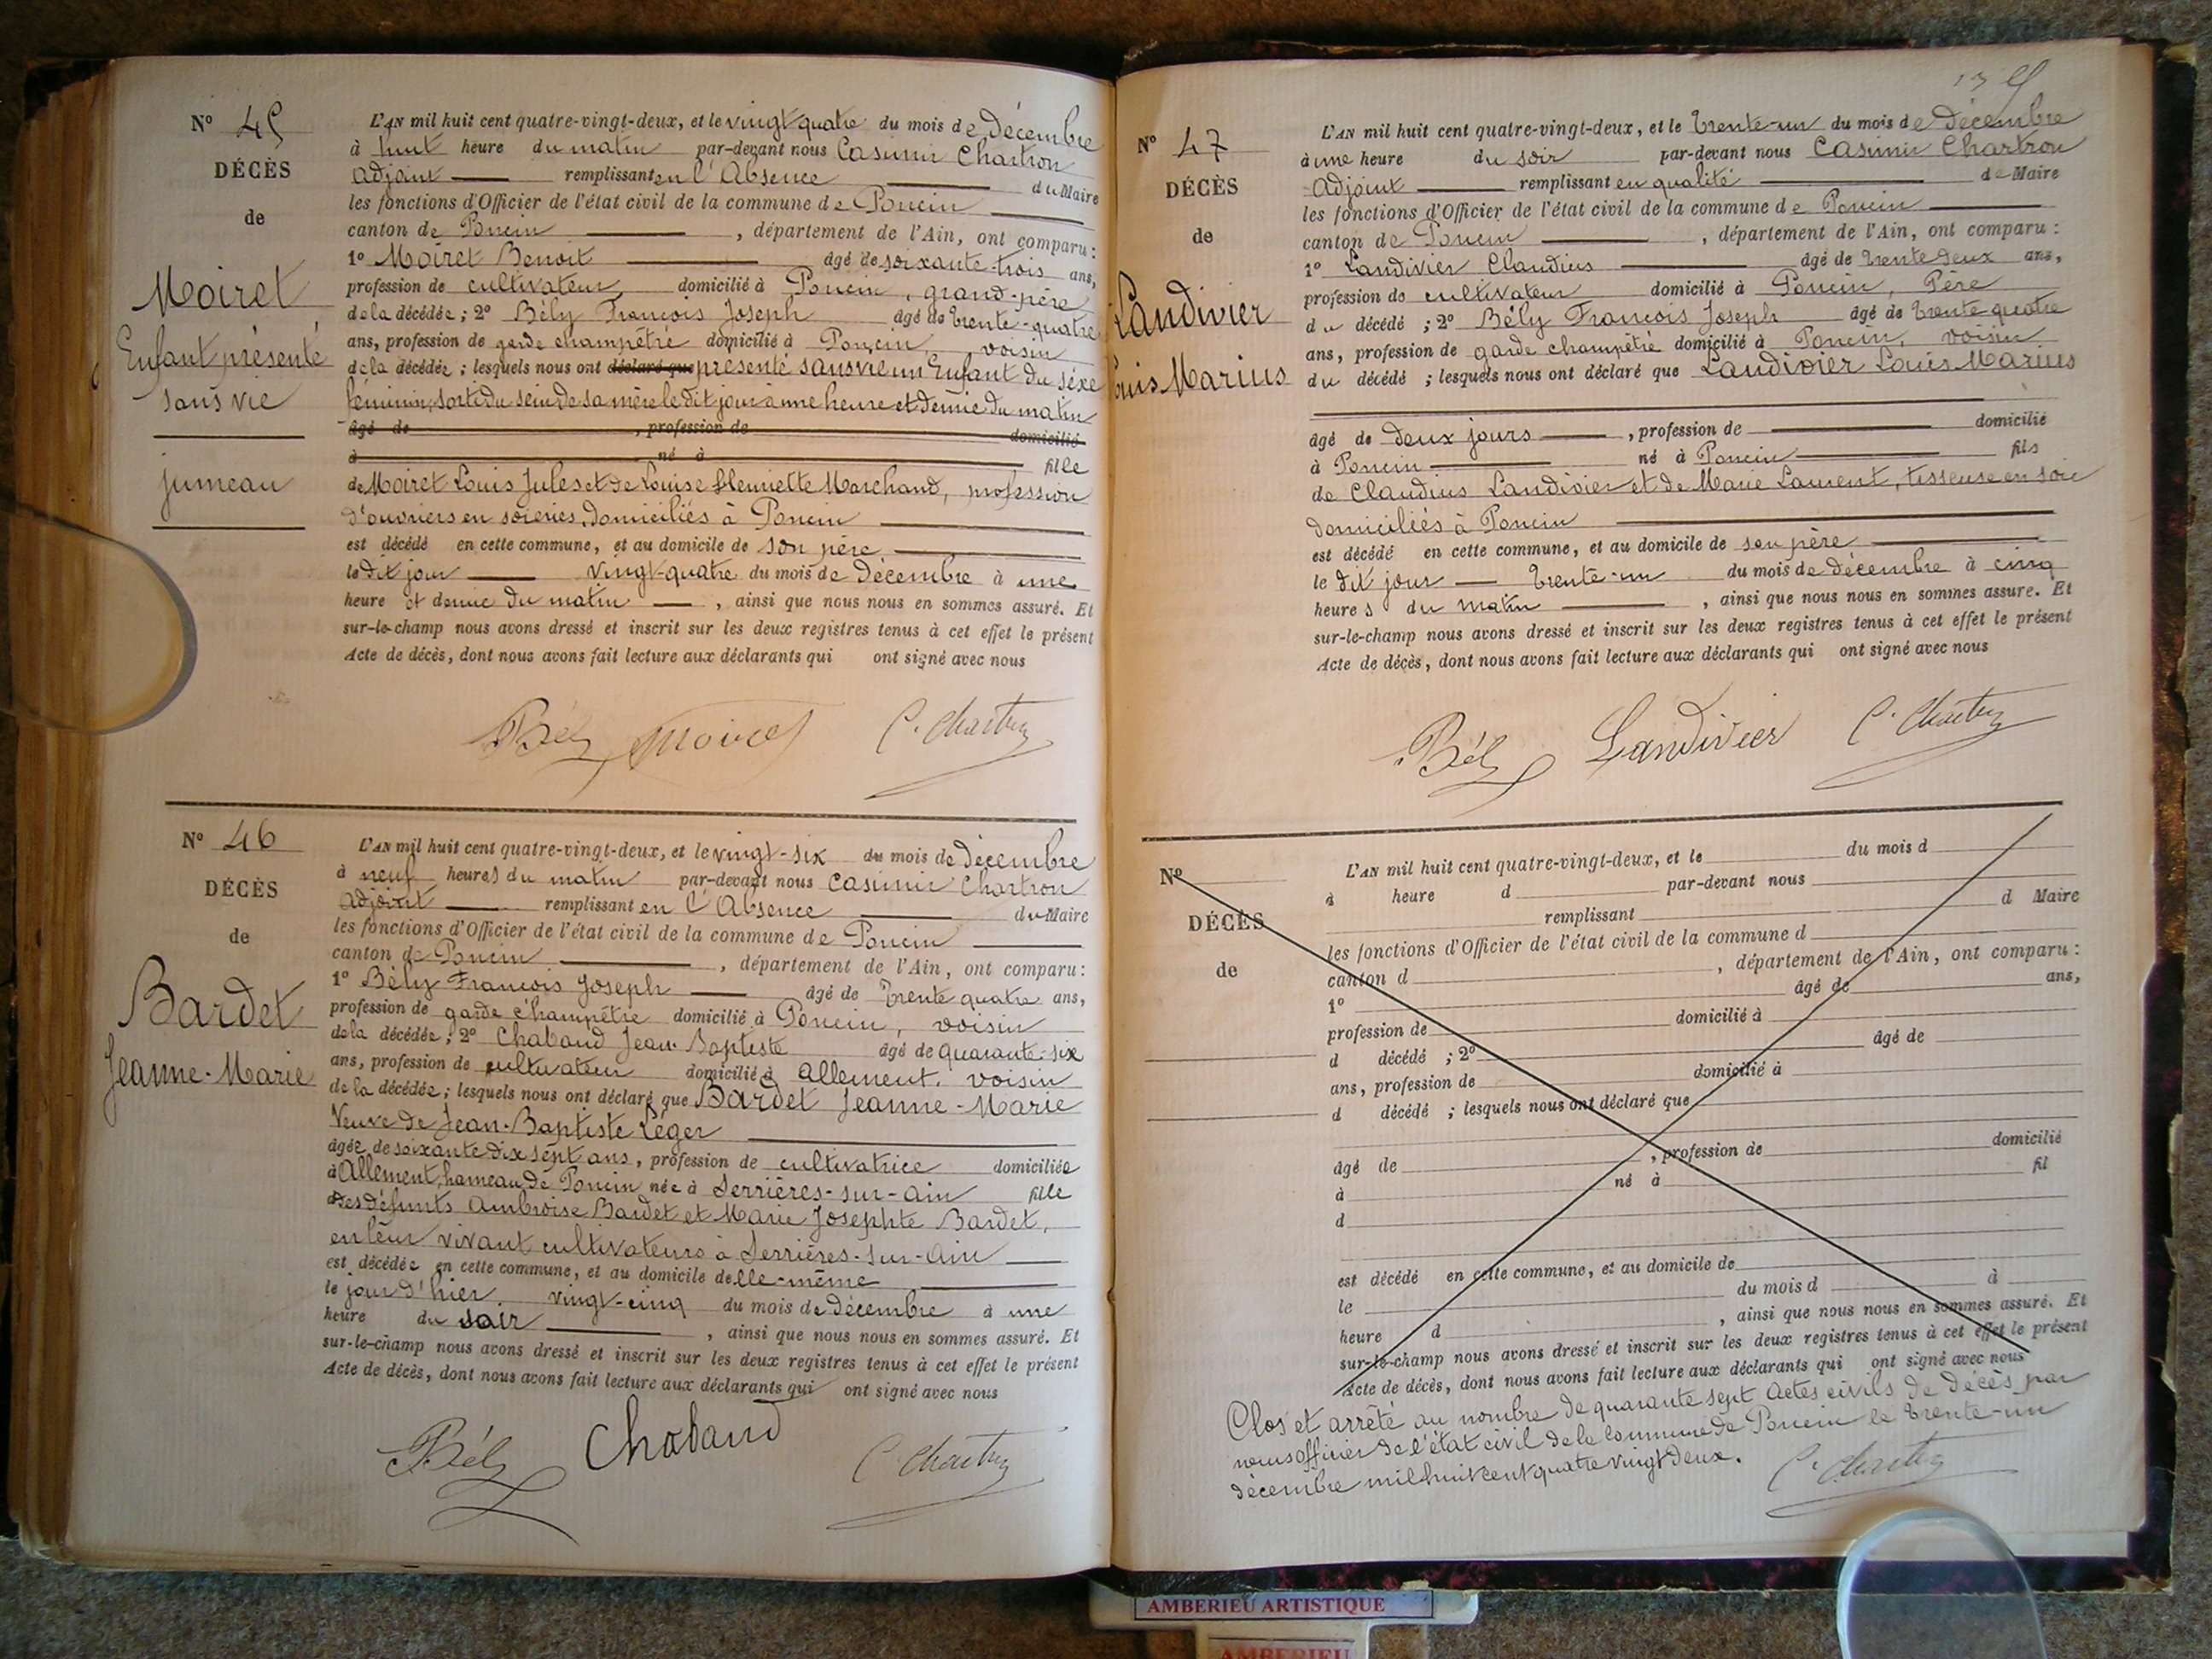 Nº 45
DÉCÈS
de
Moiret
Enfant présenté
sans vie
jumeau
L'AN mil huit cent quatre-vingt-deux, et le vingt quatre du mois de Décembre
à huit heure du matin par-devant nous Casimir Chartron
adjoint remplissant en l'Absence du Maire
les fonctions d'Officier de l'état civil de la commune de Poncin
canton de Poncin, département de l'Ain, ont comparu :
1º Moiret Benoit âgé de soixante-trois ans,
profession de cultivateur domicilié à Poncin, grand-père
de la décédée ; 2º Bély François Joseph âgé de trente-quatre
ans, profession de garde champêtre domicilié à Poncin, voisin
de la décédée ; lesquels nous ont déclaré que présenté sans vie un Enfant du séxe
féminin, sorti du sein de sa mère le dit jour à une heure et demie du matin
âgé de , profession de domicilié
à né à fille
de Moiret Louis Jules et de Louise Henriette Marchand, profession
d'ouvriers en soieries, domiciliés à Poncin
est décédé en cette commune, et au domicile de son père
le dit jour vingt-quatre du mois de Décembre à une
heure et demie du matin, ainsi que nous nous en sommes assuré. Et
sur-le-champ nous avons dressé et inscrit sur les deux registres tenus à cet effet le présent
Acte de décès, dont nous avons fait lecture aux déclarants qui ont signé avec nous
Bély Moiret C. Chartron
Nº 46
DÉCÈS
de
Bardet
Jeanne-Marie
L'AN mil huit cent quatre-vingt-deux, et le vingt-six du mois de Décembre
à neuf heures du matin par-devant nous Casimir Chartron
adjoint remplissant en l'Absence du Maire
les fonctions d'Officier de l'état civil de la commune de Poncin
canton de Poncin, département de l'Ain, ont comparu :
1º Bély François Joseph âgé de trente quatre ans,
profession de garde champêtre domicilié à Poncin, voisin
de la décédée ; 2º Chabaud Jean Baptiste âgé de quarante-six
ans, profession de cultivateur domicilié à Allement, voisin
de la décédée ; lesquels nous ont déclaré que Bardet Jeanne-Marie
Veuve de Jean-Baptiste Léger
âgée de soixante dix sept ans, profession de cultivatrice domiciliée
à Allement, hameau de Poncin née à Serrières-sur-Ain fille
des défunts Ambroise Bardet et Marie Josephte Bardet,
en leur vivant cultivateurs à Serrières-sur-Ain
est décédée en cette commune, et au domicile delle-même
le jour d'hier, vingt-cinq du mois de Décembre à une
heure du soir, ainsi que nous nous en sommes assuré. Et
sur-le-champ nous avons dressé et inscrit sur les deux registres tenus à cet effet le présent
Acte de décès, dont nous avons fait lecture aux déclarants qui ont signé avec nous
Bély Chabaud C. Chartron
Nº 47
DÉCÈS
de
Landivier
Louis Marius
L'AN mil huit cent quatre-vingt-deux, et le trente-un du mois de Décembre
à une heure du soir par-devant nous Casimir Chartron
Adjoint remplissant en qualité de Maire
les fonctions d'Officier de l'état civil de la commune de Poncin
canton de Poncin, département de l'Ain, ont comparu :
1º Landivier Claudius âgé de trente deux ans,
profession de cultivateur domicilié à Poncin, Père
du décédé ; 2º Bély François Joseph âgé de trente quatre
ans, profession de garde champêtre domicilié à Poncin, voisin
du décédé ; lesquels nous ont déclaré que Landivier Louis Marius
âgé de deux jours, profession de domicilié
à Poncin né à Poncin fils
de Claudius Landivier et de Marie Laurent, tisseuse en soie
domiciliés à Poncin
est décédé en cette commune, et au domicile de son père
le dit jour trente-un du mois de décembre à cinq
heures du matin, ainsi que nous nous en sommes assuré. Et
sur-le-champ nous avons dressé et inscrit sur les deux registres tenus à cet effet le présent
Acte de décès, dont nous avons fait lecture aux déclarants qui ont signé avec nous
Bély Landivier C. Chartron
Nº
DÉCÈS
de
L'AN mil huit cent quatre-vingt-deux, et le du mois d
à heure d par-devant nous
remplissant d Maire
les fonctions d'Officier de l'état civil de la commune d
canton d , département de l'Ain, ont comparu :
1º âgé de ans,
profession de domicilié à
d décédé ; 2º âgé de
ans, profession de domicilié à
d décédé ; lesquels nous ont déclaré que
âgé de , profession de domicilié
à né à fil
d
est décédé en cette commune, et au domicile de
le du mois d à
heure d , ainsi que nous nous en sommes assuré. Et
sur-le-champ nous avons dressé et inscrit sur les deux registres tenus à cet effet le présent
Acte de décès, dont nous avons fait lecture aux déclarants qui ont signé avec nous
Clos et arrêté au nombre de quarante sept actes civils de décès par
nous officier de l'état civil de la commune de Poncin le trente-un
décembre mil huit cent quatre vingt deux. C. Chartron
AMBERIEU ARTISTIQUE
AMBERIEU